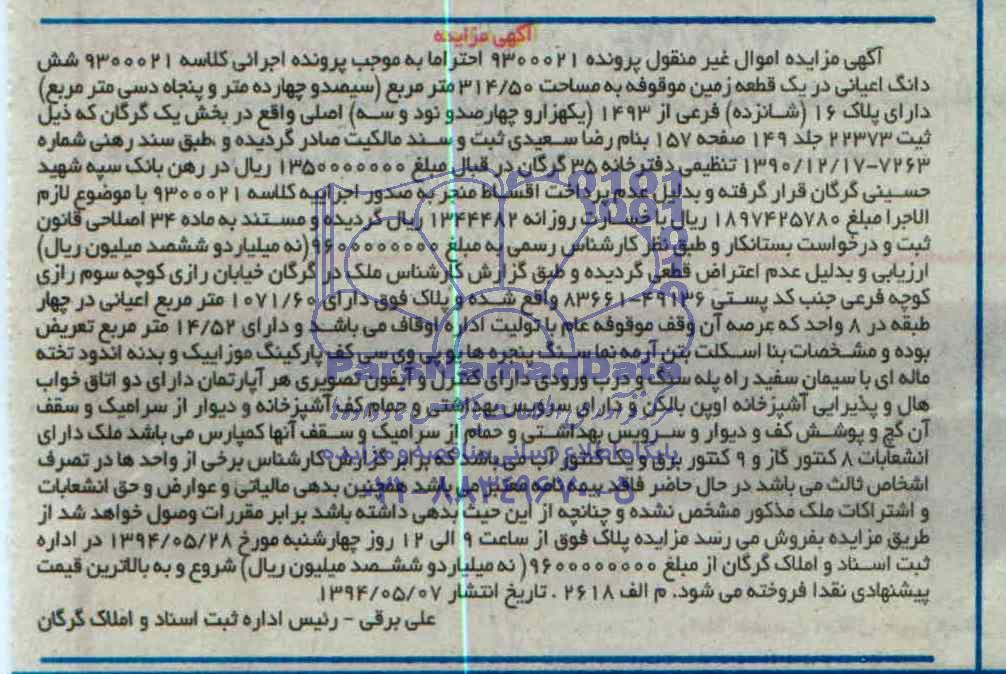 آگهی مزایده
آگهی مزایده اموال غیر منقول پرونده ۹۳۰۰۰۲۱ احتراما به موجب پرونده اجرائی کلاسه ۹۳۰۰۰۲۱ شش
دانگ اعیانی در یک قطعه زمین موقوفه به مساحت ۳۱۴/۵۰ متر مربع (سیصدو چهارده متر و پنجاه دسی متر مربع)
دارای پلاک ۱۶ (شانزده) فرعی از ۱۴۹۳ (یکهزارو چهارصدو نود و سه) اصلی واقع در بخش یک گرگان که ذیل
ثبت ۲۲۳۷۳ جلد ۱۴۹ صفحه ۱۵۷ بنام رضا سعیدی ثبت و سند مالکیت صادر گردیده و طبق سند رهنی شماره
۷۲۶۳-۱۳۹۰/۱۲/۱۷ تنظیمی دفترخانه ۳۵ گرگان در قبال مبلغ ۱۳۵۰۰۰۰۰۰۰ ریال در رهن بانک سپه شهید
حسینی گرگان قرار گرفته و بدلیل عدم پرداخت اقساط منجر به صدور اجرائیه کلاسه ۹۳۰۰۰۲۱ با موضوع لازم
الاجرا مبلغ ۱۸۹۷۴۲۵۷۸۰ ریال با خسارت روزانه ۱۳۴۴۴۸۲ ریال گردیده و مستند به ماده ۳۴ اصلاحی قانون
ثبت و درخواست بستانکار و طبق نظر کارشناس رسمی به مبلغ ۹۶۰۰۰۰۰۰۰۰ (نه میلیاردو ششصد میلیون ریال)
ارزیابی و بدلیل عدم اعتراض قطعی گردیده و طبق گزارش کارشناس ملک در گرگان خیابان رازی کوچه سوم رازی
کوچه فرعی جنب کد پستی ۴۹۱۳۶-۸۳۶۶۱ واقع شده و پلاک فوق دارای ۱۰۷۱/۶۰ متر مربع اعیانی در چهار
طبقه در ۸ واحد که عرصه آن وقف موقوفه عام با تولیت اداره اوقاف می باشد و دارای ۱۴/۵۲ متر مربع تعریض
بوده و مشخصات بنا اسکلت بتن آرمه نما سنگ پنجره ها یو پی وی سی کف پارکینگ موزاییک و بدنه اندود تخته
ماله ای با سیمان سفید راه پله سنگ و درب ورودی دارای کنترل و آیفون تصویری هر آپارتمان دارای دو اتاق خواب
هال و پذیرایی آشپزخانه اوپن بالکن و دارای سرویس بهداشتی و حمام کف آشپزخانه و دیوار از سرامیک و سقف
آن گچ و پوشش کف و دیوار و سرویس بهداشتی و حمام از سرامیک و سقف آنها کمپارس می باشد ملک دارای
انشعابات ۸ کنتور گاز و ۹ کنتور برق و یک کنتور آب می باشد که برابر گزارش کارشناس برخی از واحد ها در تصرف
اشخاص ثالث می باشد در حال حاضر فاقد بیمه نامه معتبر می باشد همچنین بدهی مالیاتی و عوارض و حق انشعابات
و اشتراکات ملک مذکور مشخص نشده و چنانچه از این حیث بدهی داشته باشد برابر مقررات وصول خواهد شد از
طریق مزایده بفروش می رسد مزایده پلاک فوق از ساعت ۹ الی ۱۲ روز چهارشنبه مورخ ۱۳۹۴/۰۵/۲۸ در اداره
ثبت اسناد و املاک گرگان از مبلغ ۹۶۰۰۰۰۰۰۰۰ (نه میلیاردو ششصد میلیون ریال) شروع و به بالاترین قیمت
پیشنهادی نقدا فروخته می شود. م الف ۲۶۱۸ . تاریخ انتشار ۱۳۹۴/۰۵/۰۷
علی برقی - رئیس اداره ثبت اسناد و املاک گرگان
ParsNamadData
پایگاه اطلاع رسانی مناقصه و مزایده
۰۲۱-۸۸۳۴۹۶۷۰-۵